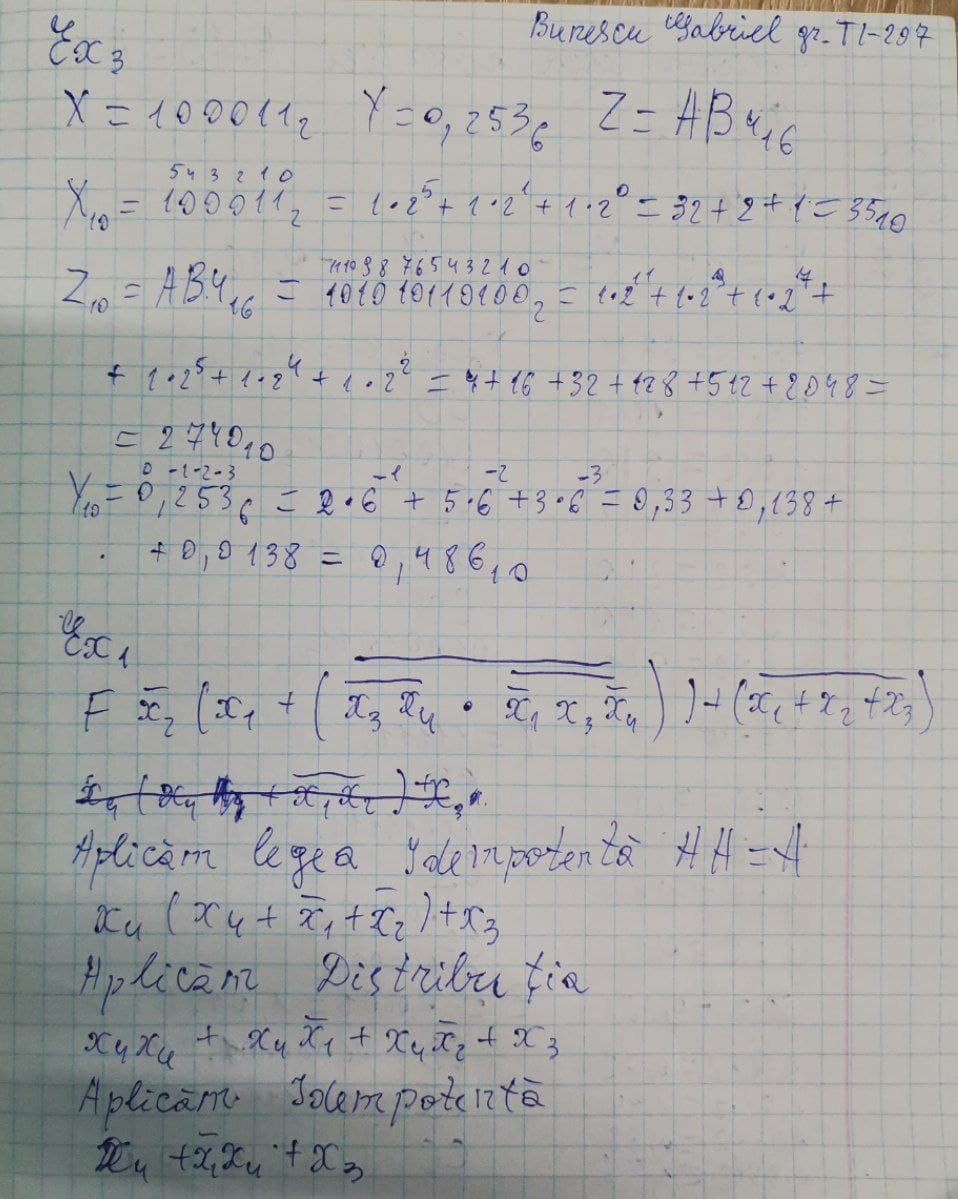 Bunescu Gabriel gr. TI-207
Ex₃
X = 100011₂ Y = 0,253₆ Z = AB4₁₆
5 4 3 2 1 0
X₁₀ = 100011₂ = 1·2⁵ + 1·2¹ + 1·2⁰ = 32 + 2 + 1 = 35₁₀
11 10 9 8 7 6 5 4 3 2 1 0
Z₁₀ = AB4₁₆ = 101010110100₂ = 1·2¹¹ + 1·2⁹ + 1·2⁷ +
+ 1·2⁵ + 1·2⁴ + 1·2² = 4 + 16 + 32 + 128 + 512 + 2048 =
= 2740₁₀
0 -1 -2 -3
Y₁₀ = 0,253₆ = 2·6⁻¹ + 5·6⁻² + 3·6⁻³ = 0,33 + 0,138 +
+ 0,0138 = 0,486₁₀
Ex₁
F x̄₂ (x₁ + (x̅₃x̅₄ · x̄₁ x₃ x̄₄)) + (x₁ + x₂ + x₃)
Aplicăm legea Idempotentă AA = A
x₄ (x₄ + x̄₁ + x̄₂) + x₃
Aplicăm Distribuția
x₄x₄ + x₄x̄₁ + x₄x̄₂ + x₃
Aplicăm Idempotentă
x₄ + x̄₁x₄ + x₃